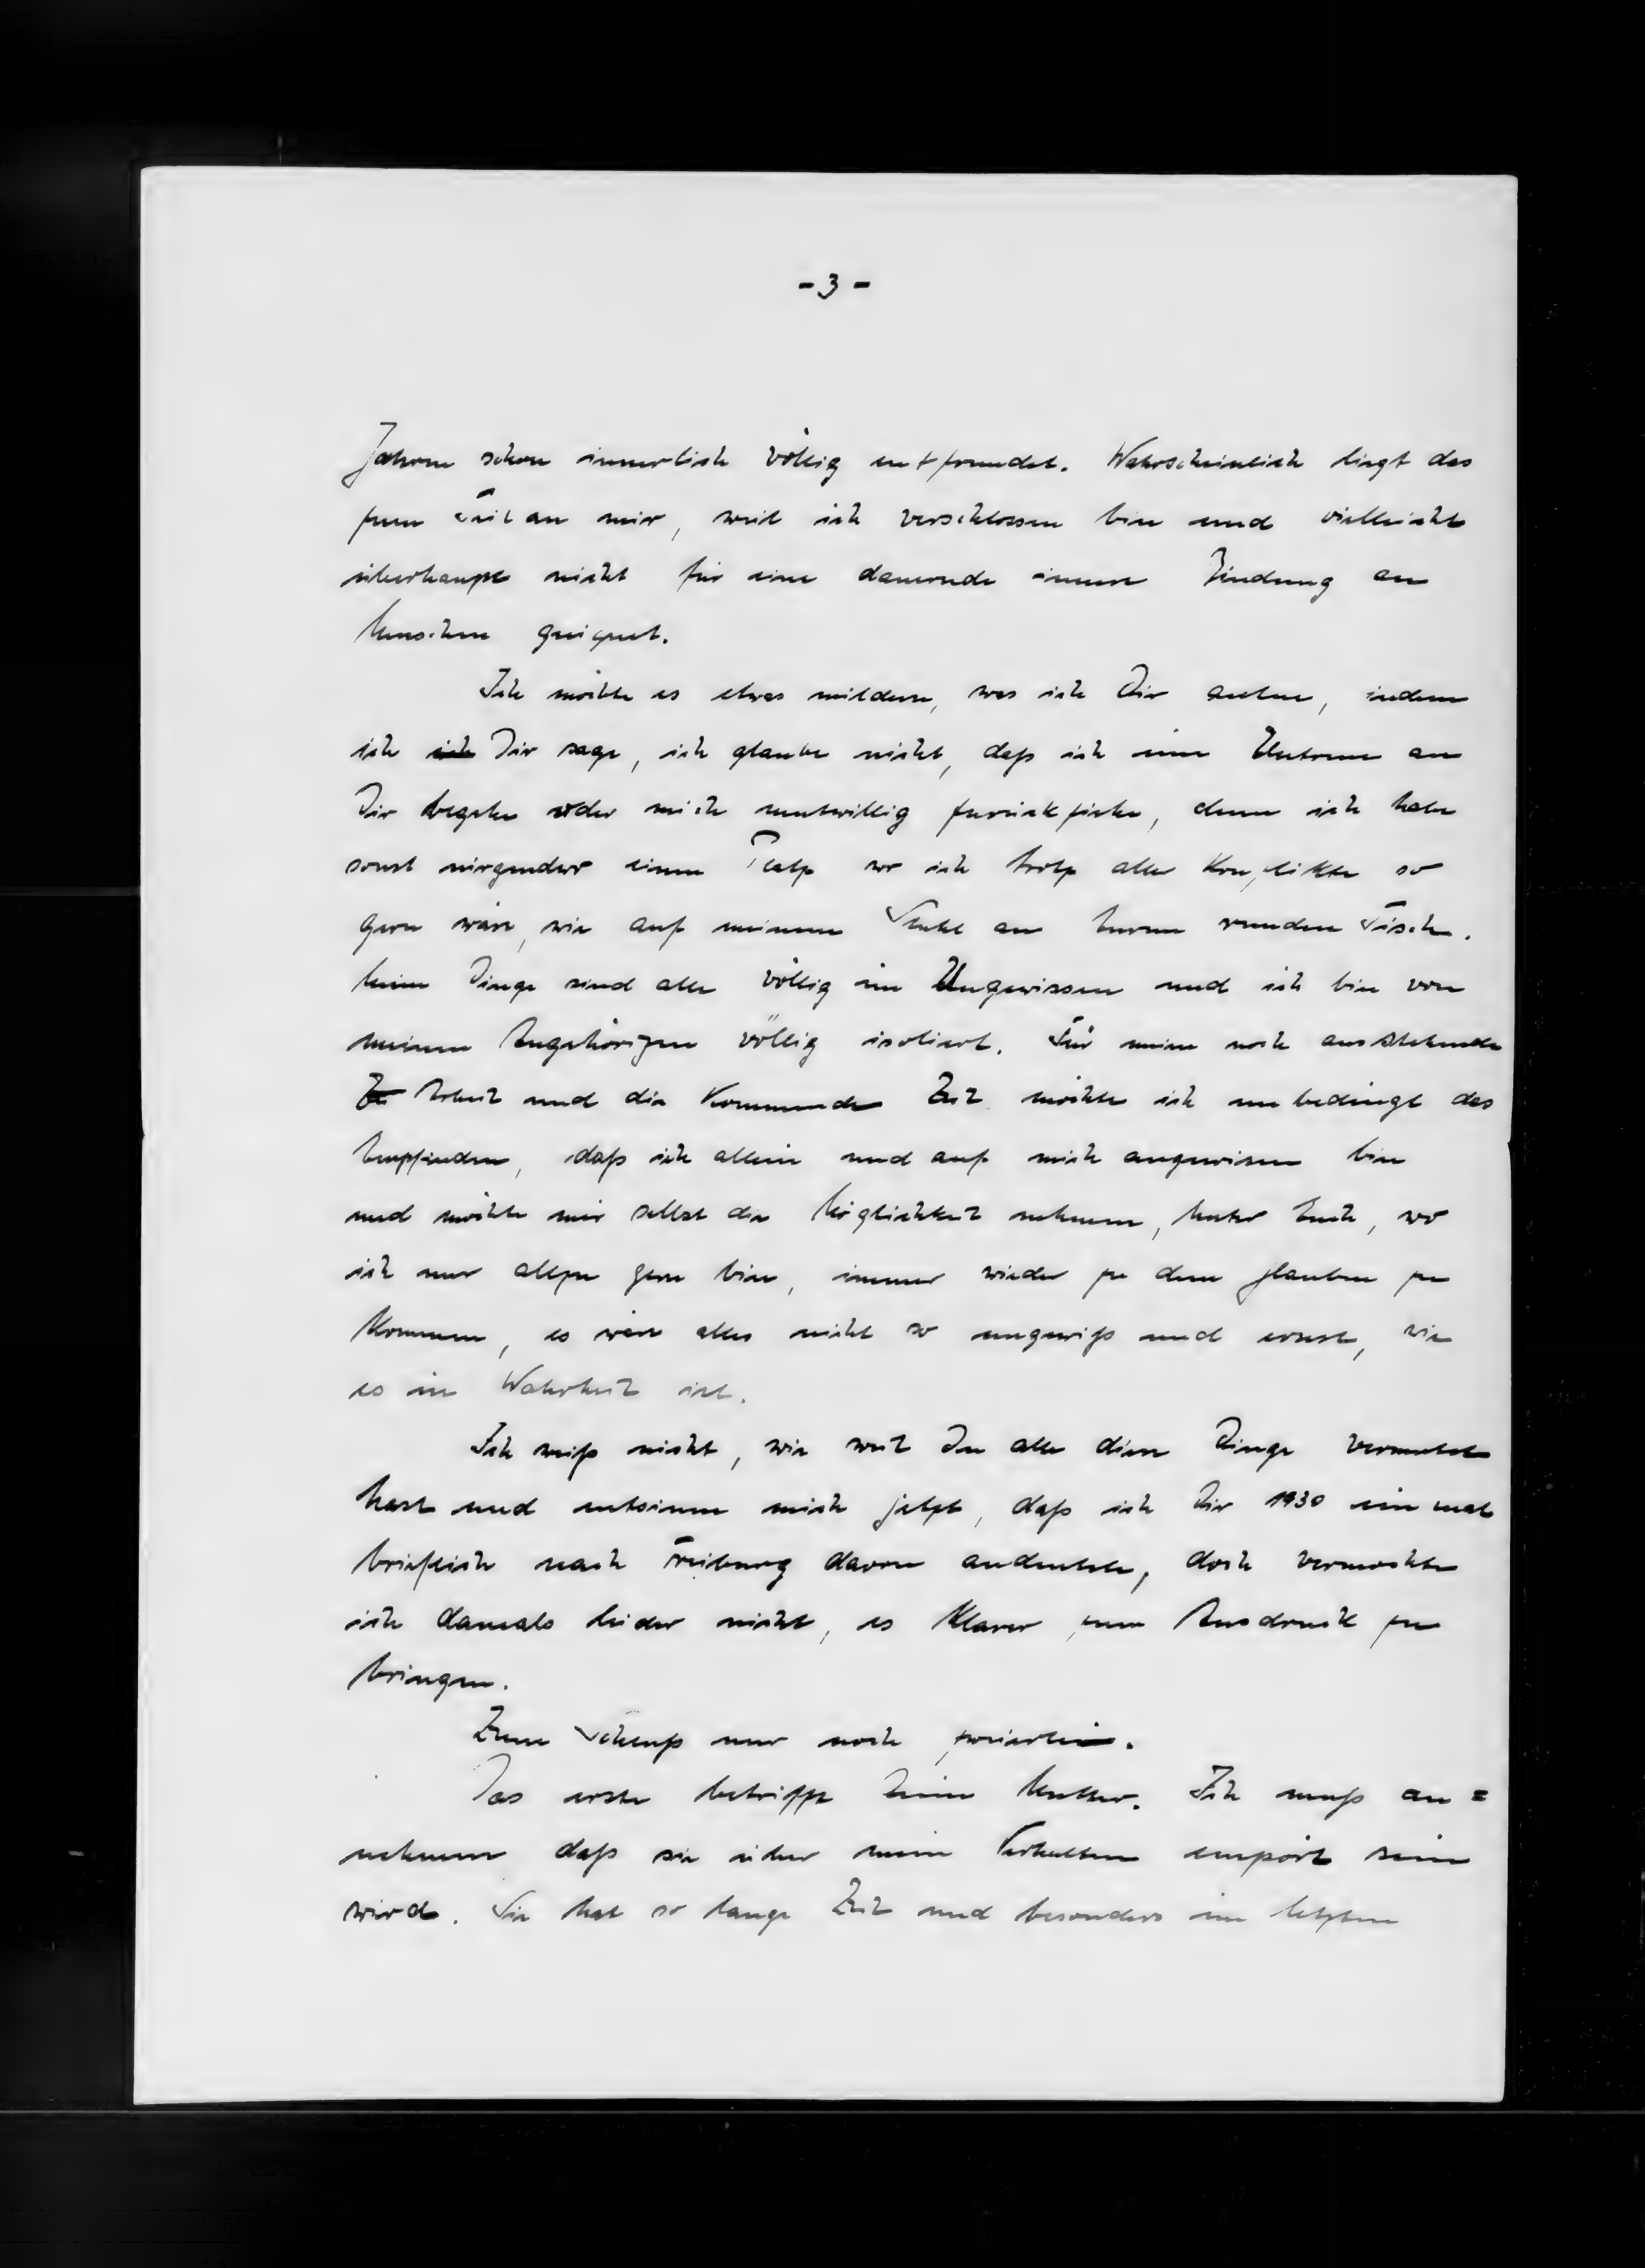 - 3 -
Jahren schon innerlich völlig entfremdet. Wahrscheinlich liegt das
zum Teil an mir, weil ich verschlossen bin und vielleicht
überhaupt nicht für eine dauernde innere Bindung an
Menschen geeignet.
Ich möchte es etwas mildern, was ich Dir antue, indem
ich ich Dir sage, ich glaube nicht, daß ich eine Untreue an
Dir begehe oder mich mutwillig zurückziehe, denn ich habe
sonst nirgendwo einen Platz wo ich trotz aller Konflikte so
gern wäre, wie auf meinem Stuhl an Eurem runden Tisch.
Meine Dinge sind alle völlig im Ungewissen und ich bin von
meinen Angehörigen völlig isoliert. Für meine noch ausstehende
Arbeit und die kommende Zeit möchte ich unbedingt das
Empfinden, daß ich allein und auf mich angewiesen bin
und möchte mir selbst die Möglichkeit nehmen, unter Euch, wo
ich nur allzu gern bin, immer wieder zu dem Glauben zu
kommen, es wäre alles nicht so ungewiß und ernst, wie
es in Wahrheit ist.
Ich weiß nicht, wie weit Du alle diese Dinge vermutet
hast und entsinne mich jetzt, daß ich Dir 1930 ein mal
brieflich nach Freiburg davon andeutete, doch vermochte
ich damals leider nicht, es klarer zum Ausdruck zu
bringen.
Zum Schluß nur noch zweierlei.
Das erste betrifft Deine Mutter. Ich muß an=
nehmen daß sie über mein Verhalten empört sein
wird. Sie hat so lange Zeit und besonders im letzten